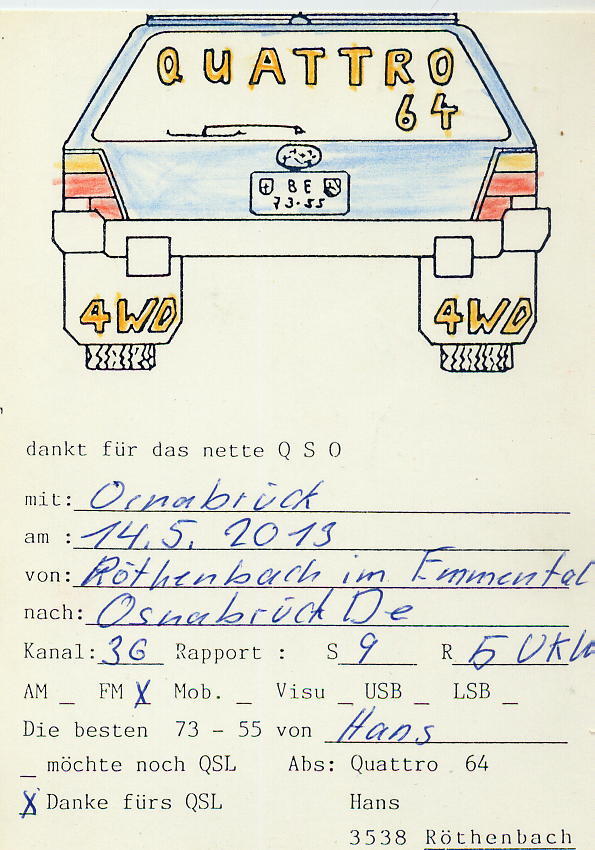 QUATTRO
64
BE
73-55
4WD 4WD
dankt für das nette Q S O
mit: Osnabrück
am : 14.5. 2013
von: Röthenbach im Emmental
nach: Osnabrück De
Kanal: 36 Rapport : S 9 R 5 UKW
AM _ FM X Mob. _ Visu _ USB _ LSB _
Die besten 73 - 55 von Hans
_ möchte noch QSL Abs: Quattro 64
X Danke fürs QSL Hans
3538 Röthenbach